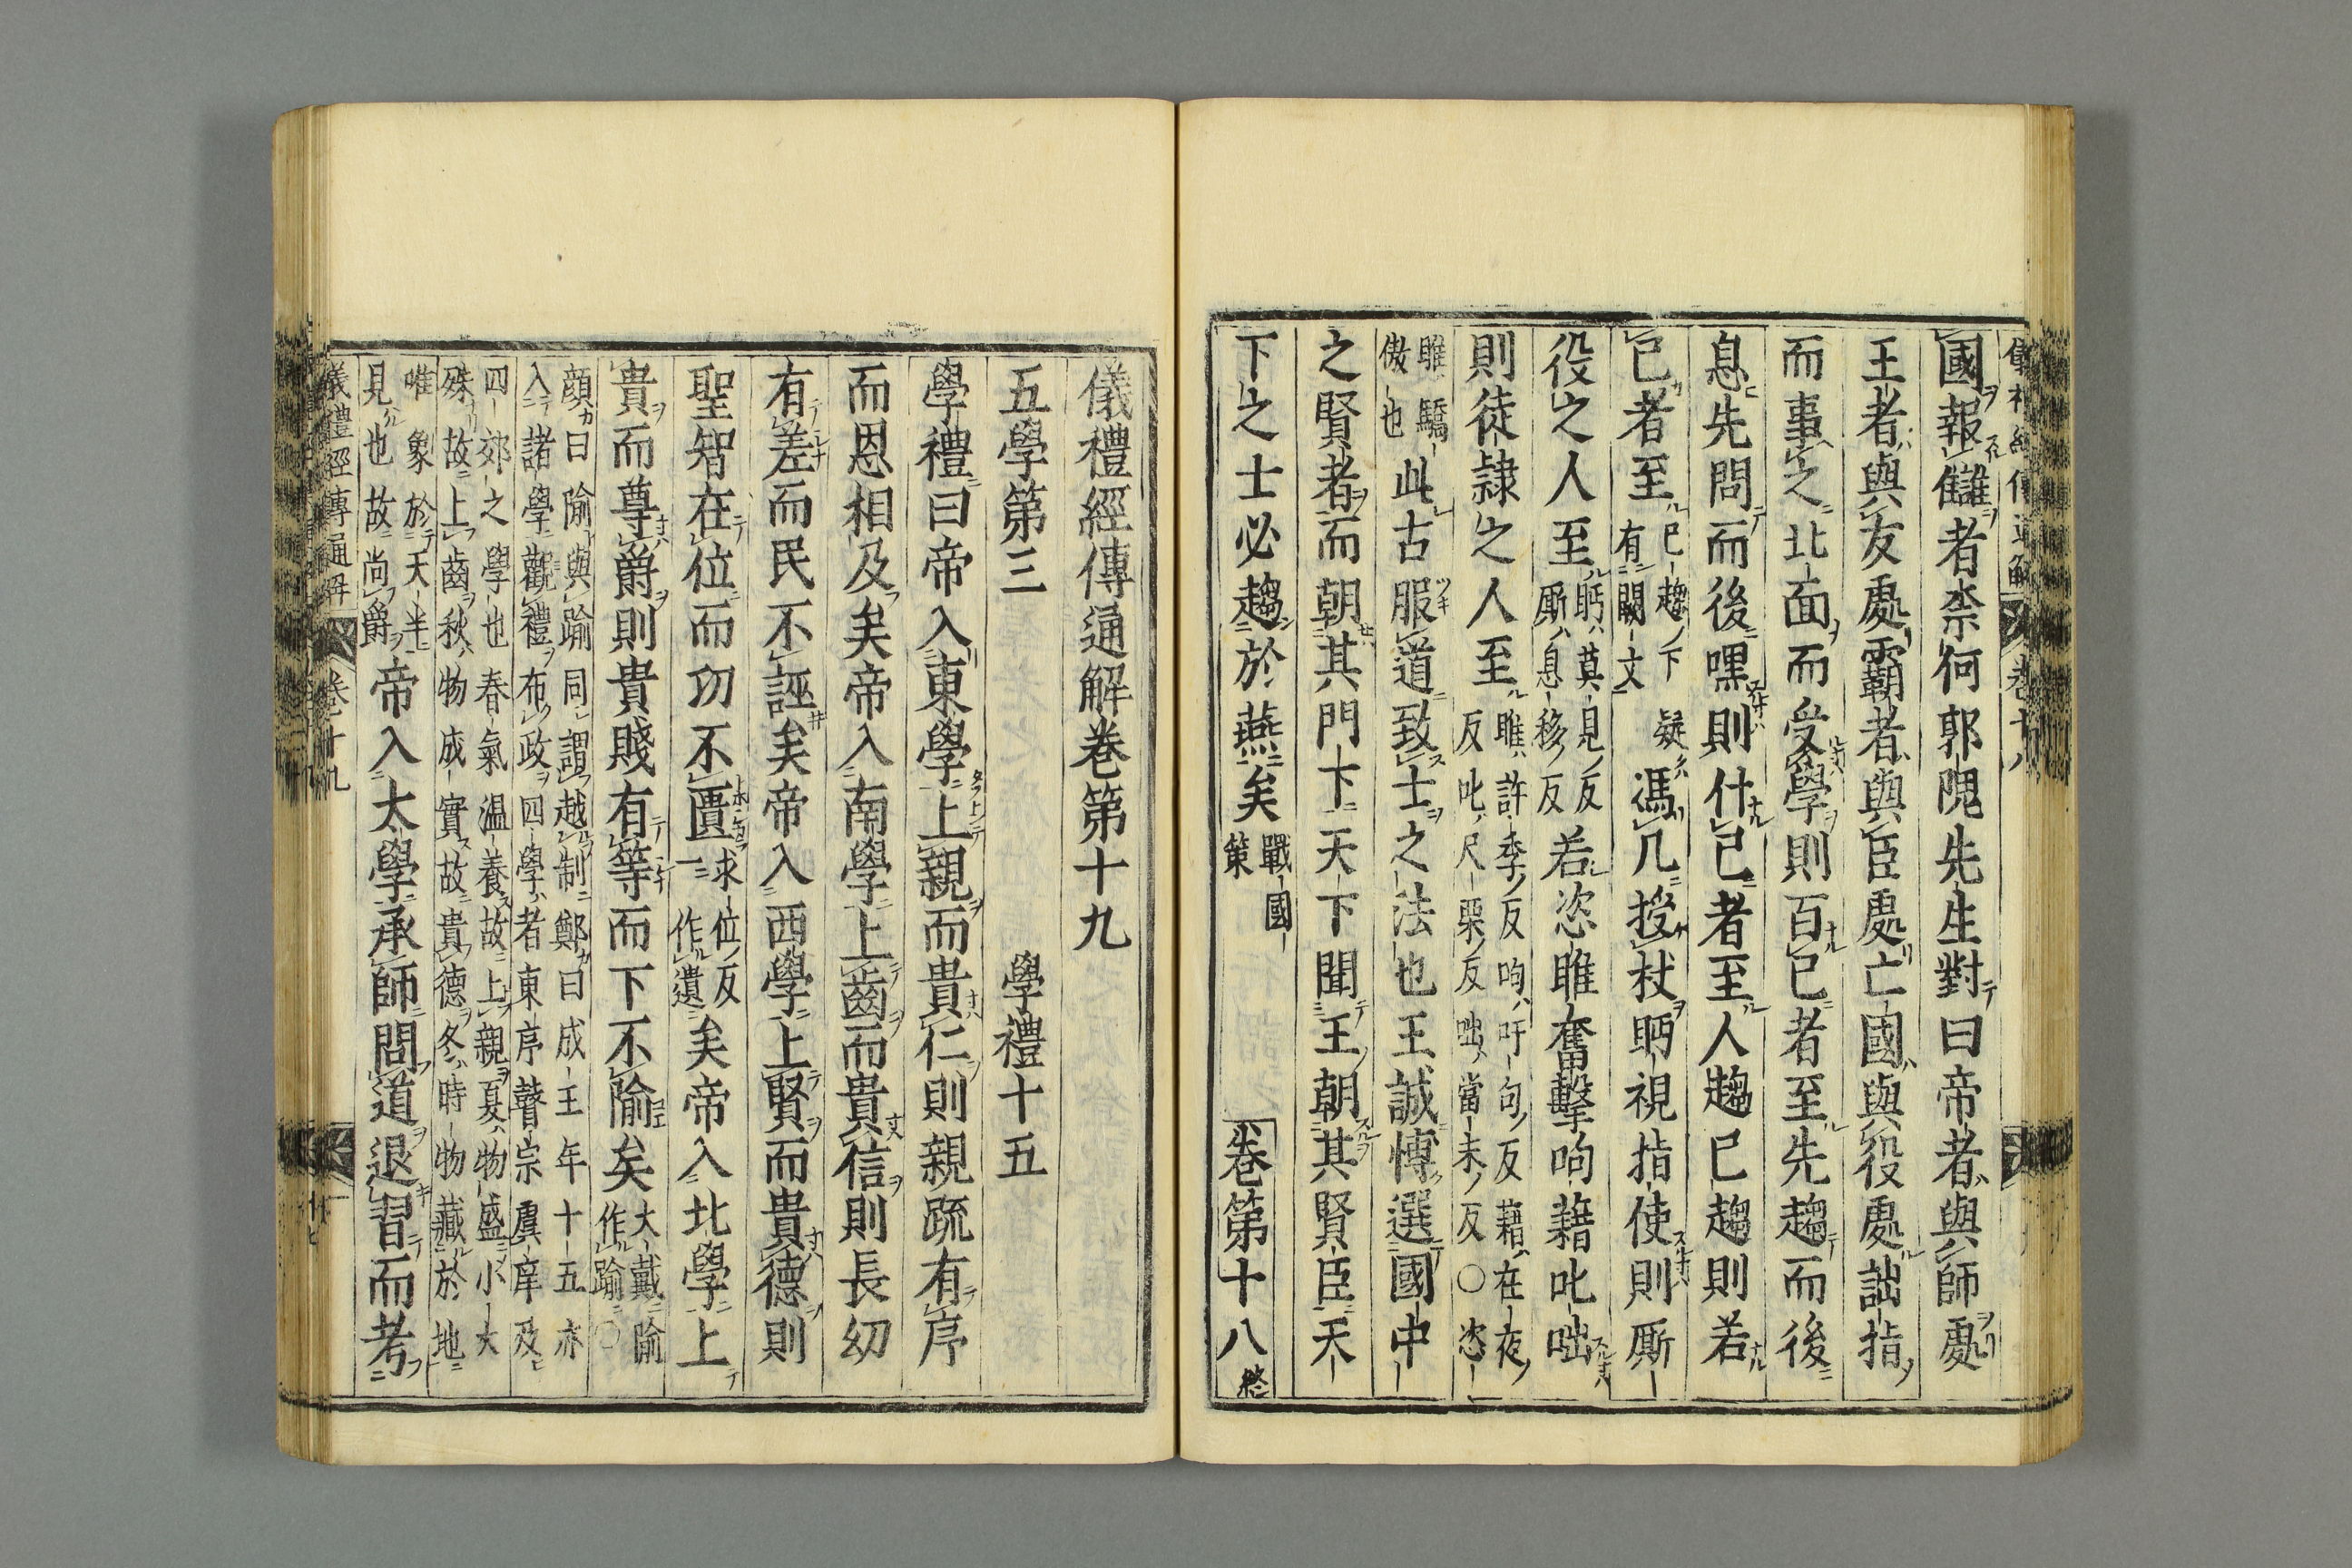 國報讎者柰何郭隗先生對曰帝者與師處
王者與友處霸者與臣處亡國與役處詘指
而事之北面而受學則百已者至先趨而後
息先問而後嘿則什已者至人趨已趨則若
已者至已趨下疑有闕文馮几授杖眄視指使則厮
役之人至眄莫見反厮息移反若恣睢奮擊呴藉叱咄
則徒隷之人至睢許季反呴吁句反藉在夜反叱尺栗反咄當未反〇恣
睢驕傲也此古服道致士之法也王誠愽選國中
之賢者而朝其門下天下聞王朝其賢臣天
下之士必趨於燕矣戰國策
卷第十八終
儀禮經傳通解卷第十九
五學第三 學禮十五
學禮曰帝入東學上親而貴仁則親疏有序
而恩相及矣帝入南學上齒而貴信則長幼
有差而民不誣矣帝入西學上賢而貴德則
聖智在位而功不匱求位反一作遺矣帝入北學上
貴而尊爵則貴賤有等而下不隃矣大戴隃作踰〇
顔曰隃與踰同謂越制鄭曰成王年十五亦
入諸學觀禮布政四學者東序瞽宗虞庠及
四郊之學也春氣温養故上親夏物盛小大
殊故上齒秋物成實故貴德冬時物藏於地
唯象於天半見也故尚爵帝入太學承師問道退習而考
儀禮經傳通解 卷十九